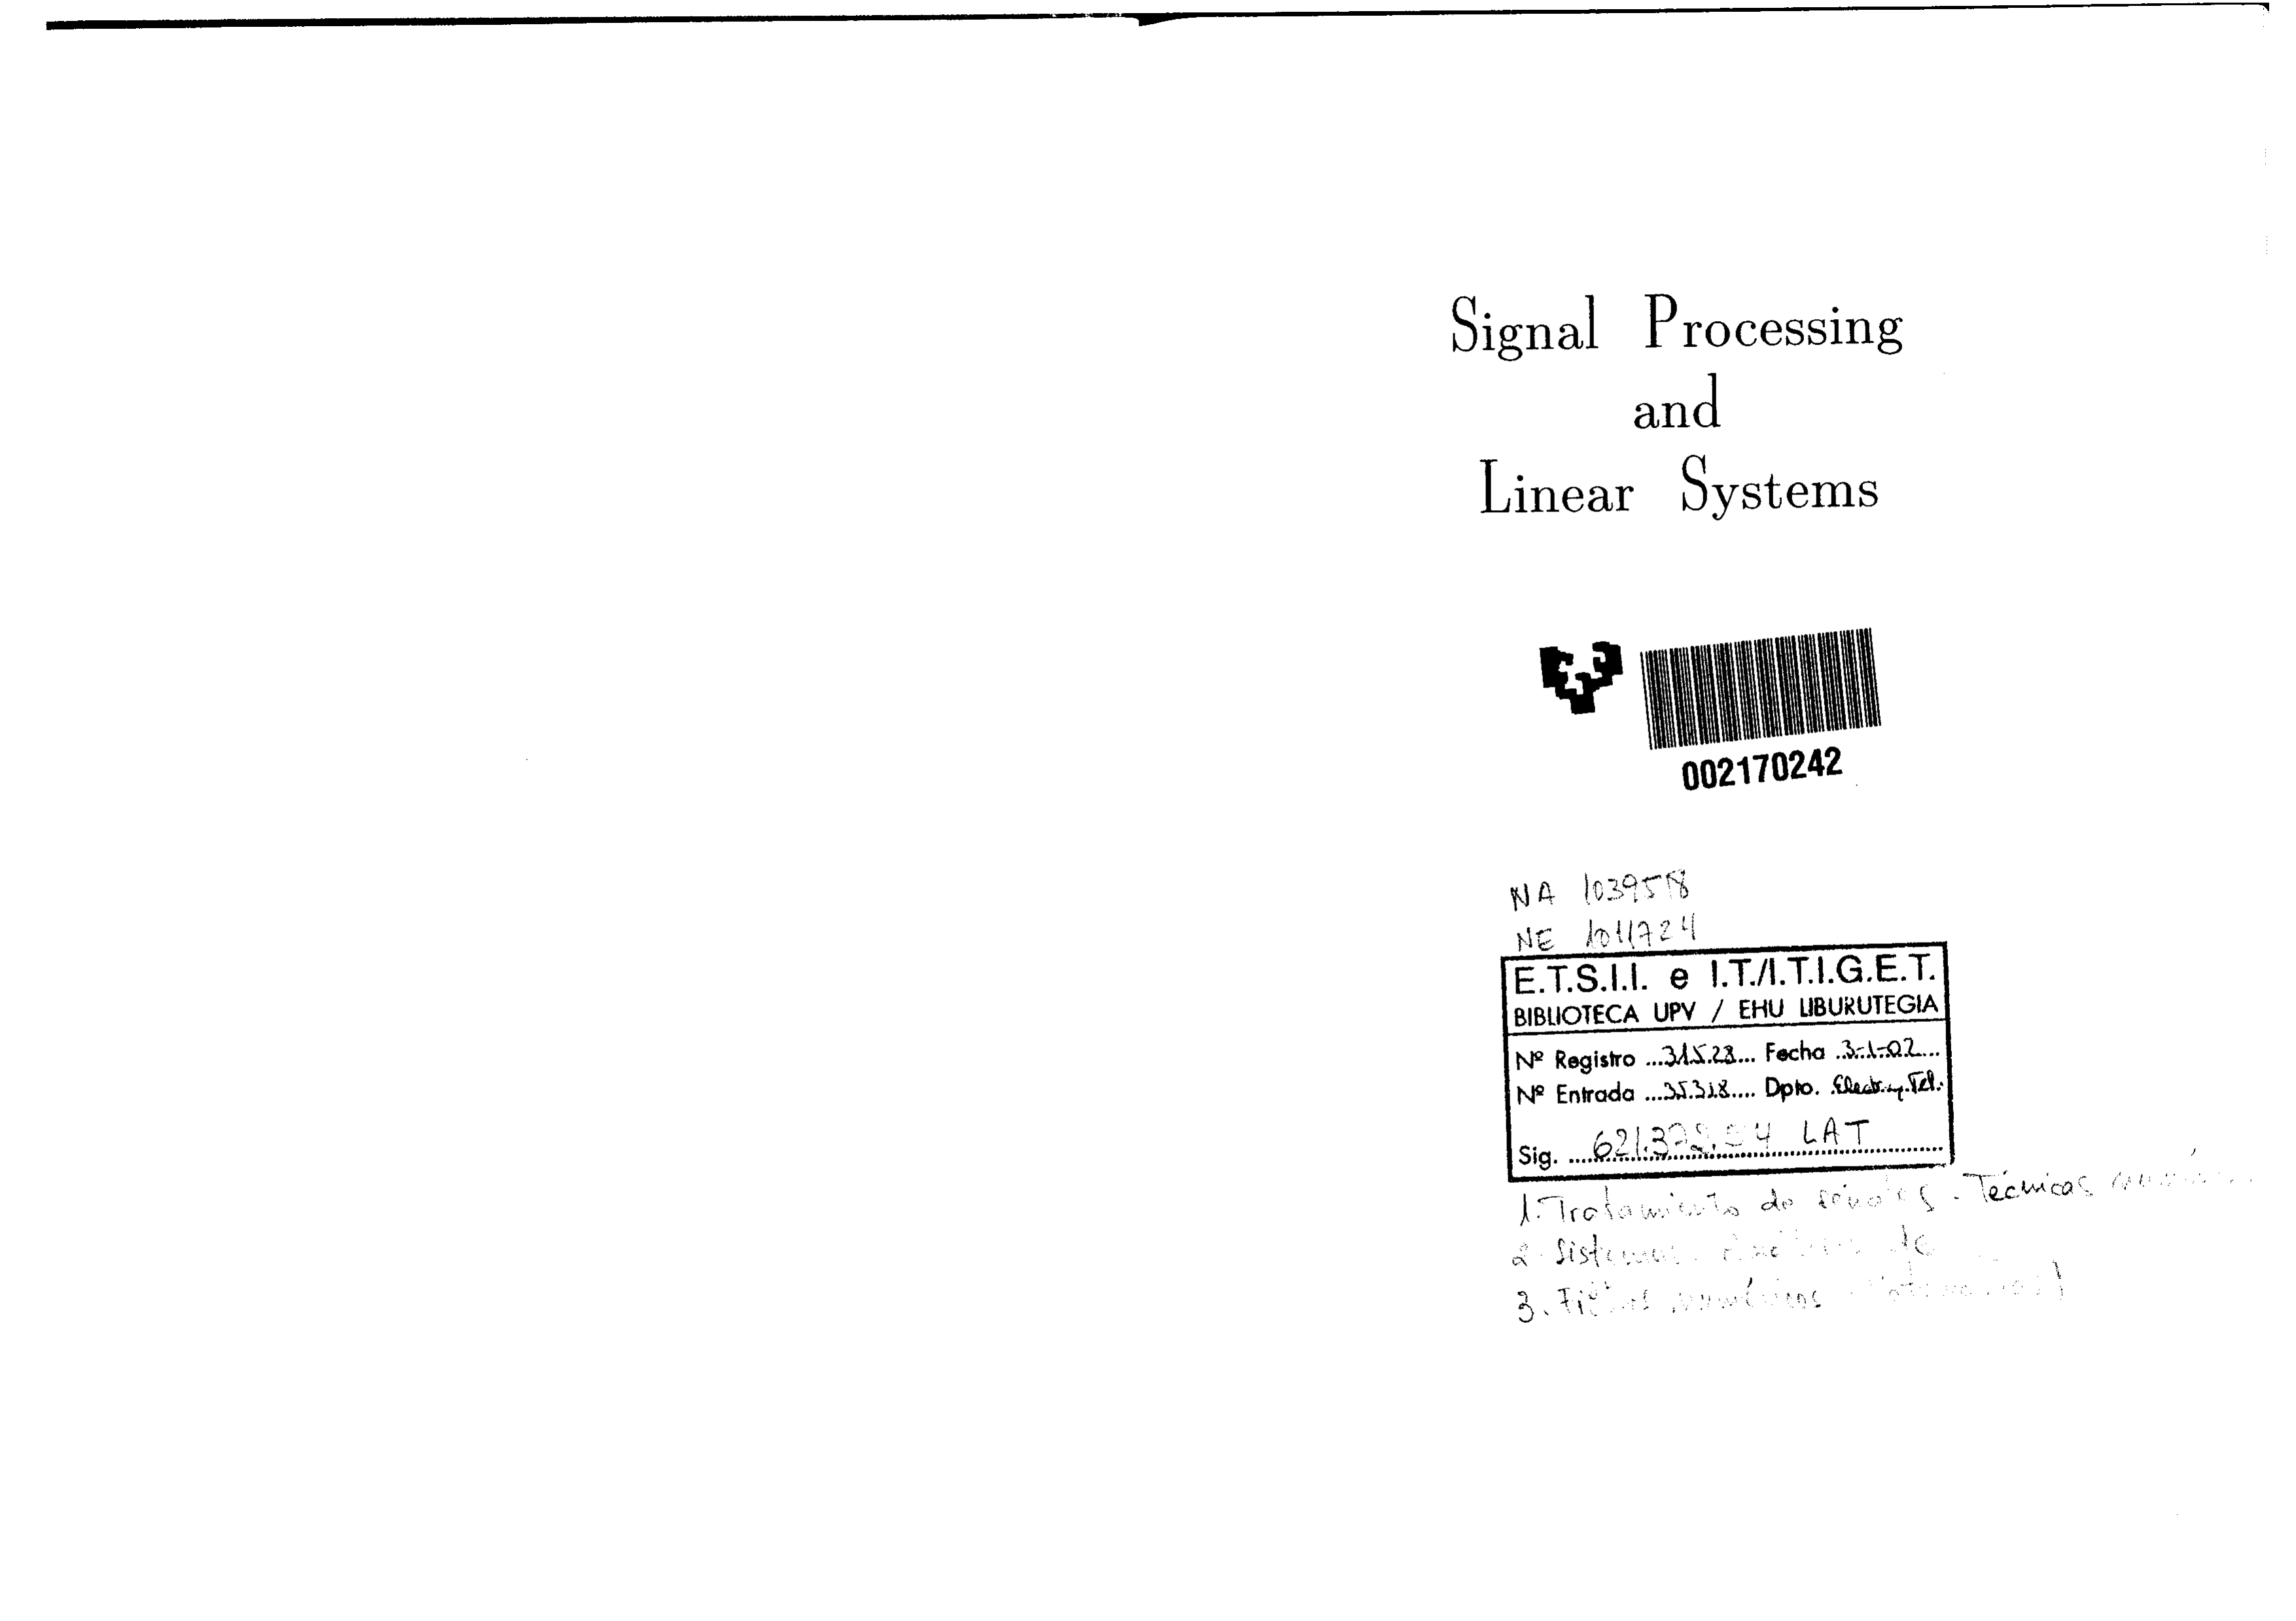 Signal Processing
and
Linear Systems
002170242
NA 1039518
NE 1011724
E.T.S.I.I. e I.T./I.T.I.G.E.T.
BIBLIOTECA UPV / EHU LIBURUTEGIA
Nº Registro ...31528... Fecha .3-1-02...
Nº Entrada ...35318.... Dpto. Electr. y Tel.
Sig. .... LAT
1. Tratamiento de señales - Técnicas
2. Sistemas de
3. numéricos